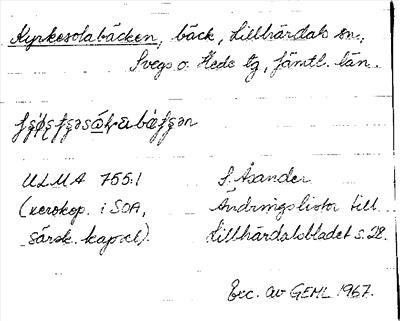 Kyrkesolabäcken, bäck, Lillhärdals sn,
Svegs o. Hede tg, Jämtl. län.
ULMA 755:1 S. Åsander
(xerokop. i SOA, Ändringslistor till
särsk. kapsel). Lillhärdalsbladet s. 28.
Exc. av GEHL 1967.